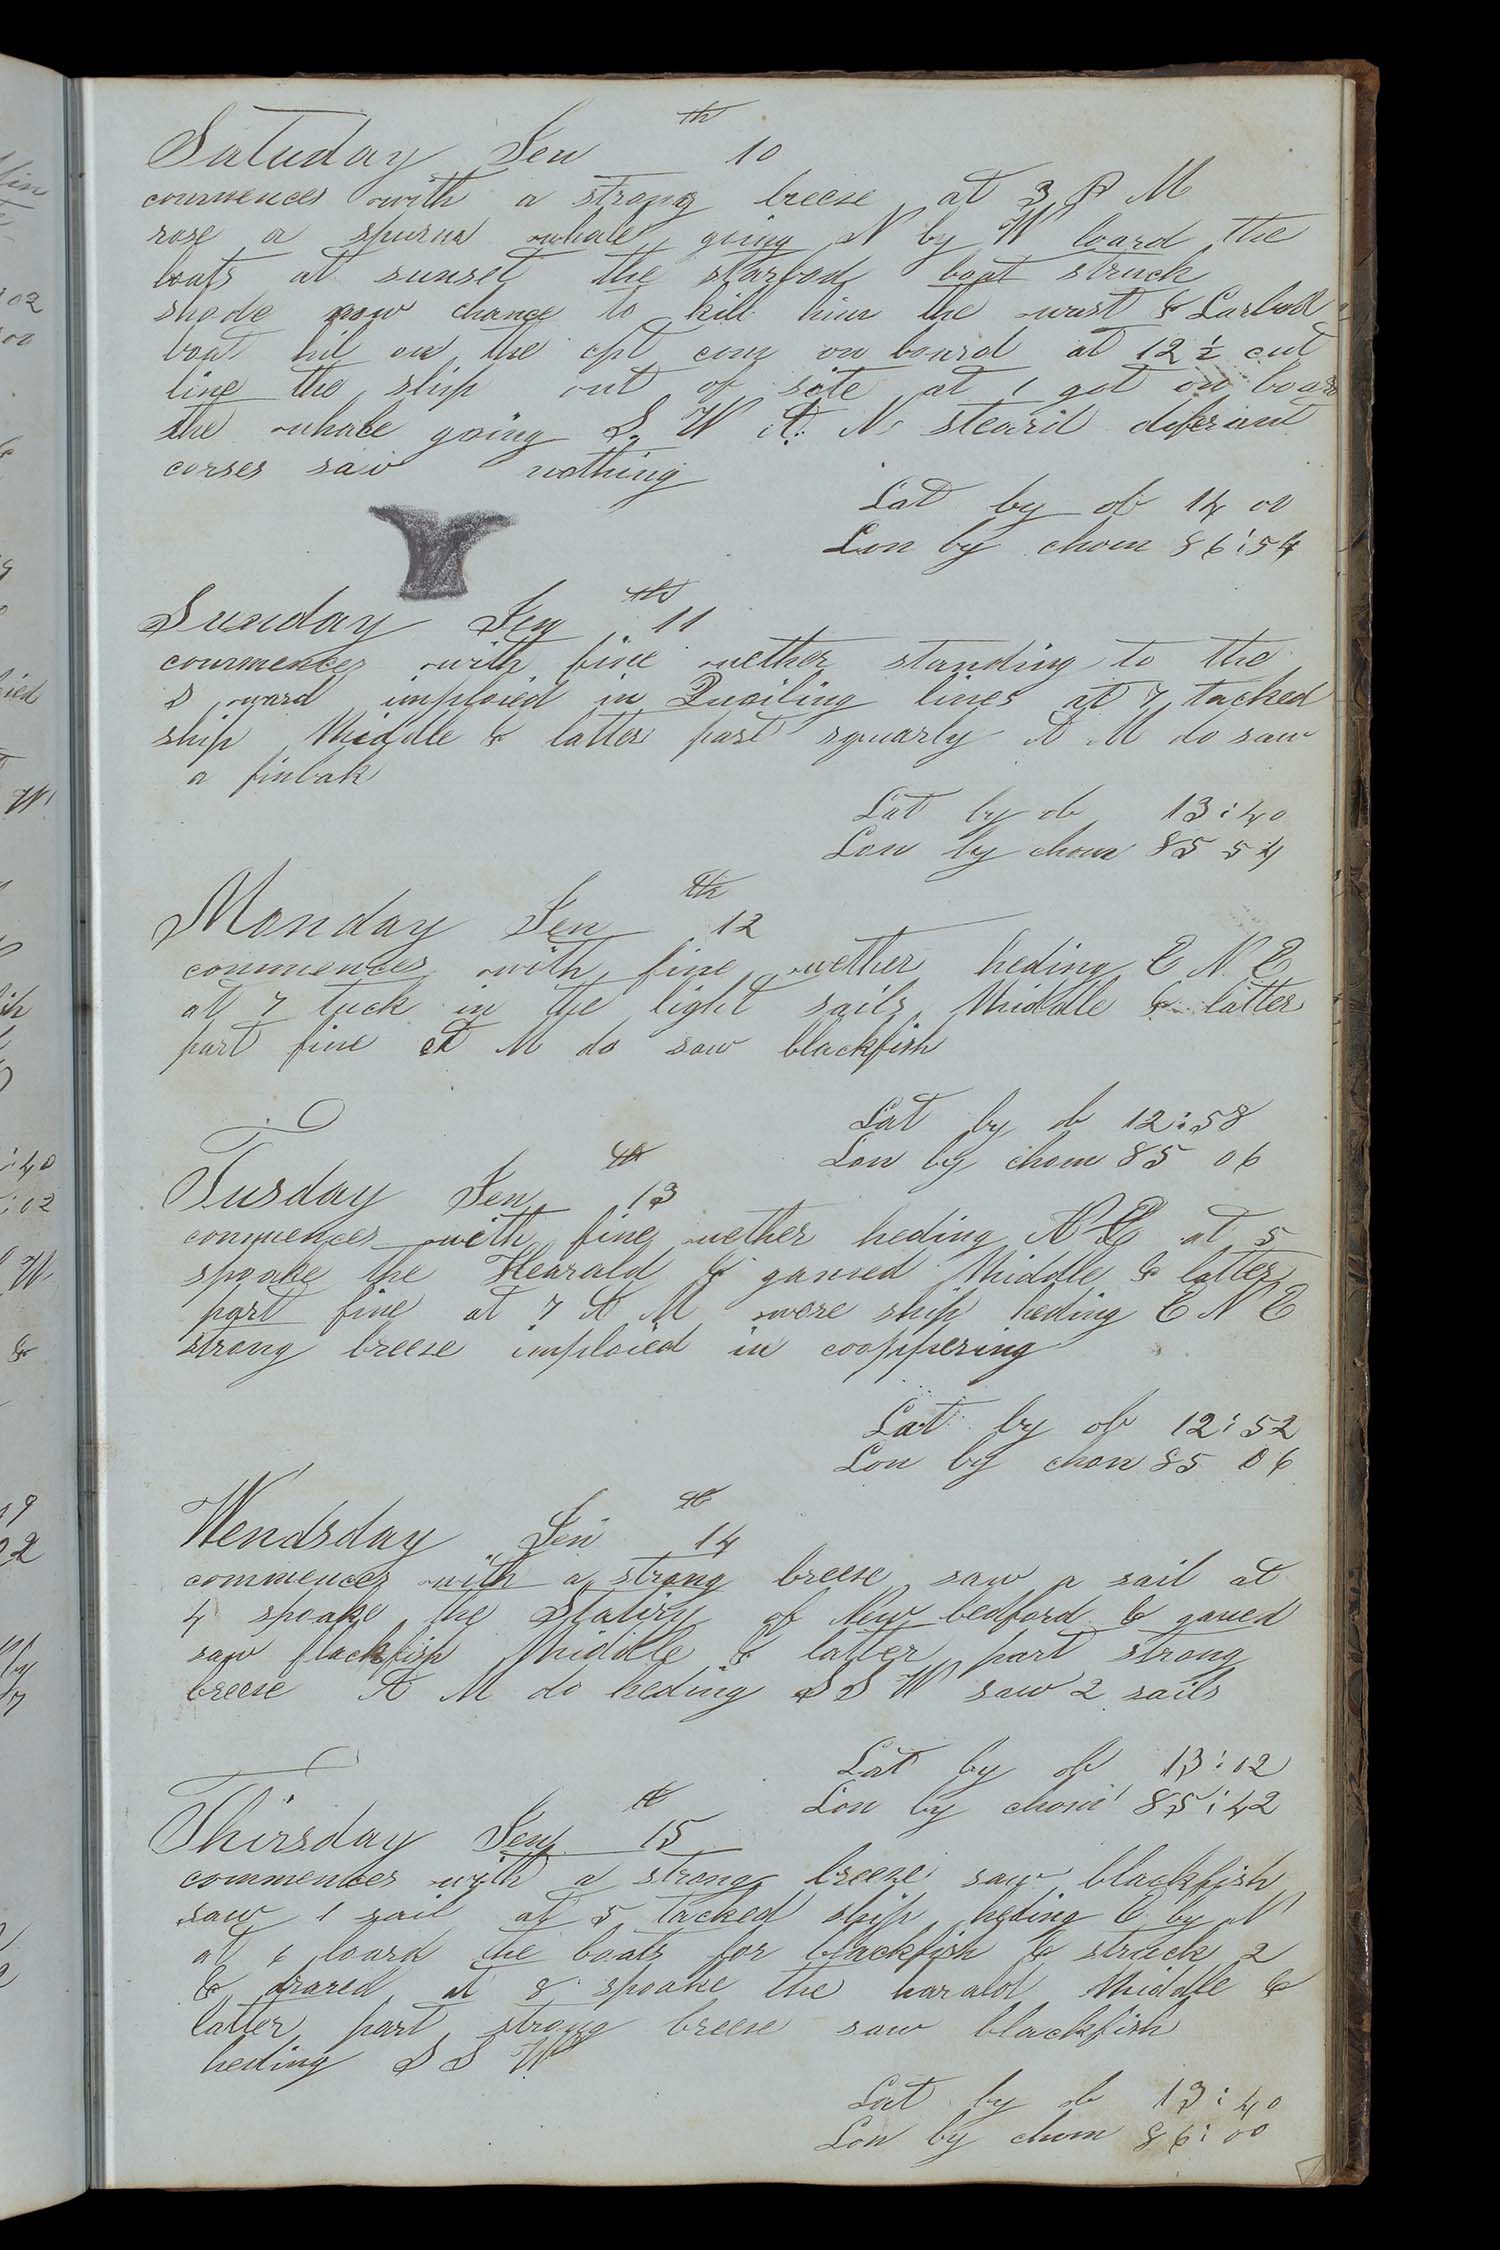 Satuday Jen 10th
commences with a strong breese at 3 P M
rose a spurm whale going N by W loard the
boats at sunset the starbod boat struck
shode now change to kill him the wast & Larbod
boat hil on the cpt com on board at 12 ½ cut
line the ship out of site at 1 got on board
the whale going S. W A. N stearil diferant
corses saw nothing
Lat by ob 14 00
Lon by chom 86:54
Sunday Jen 11th
commences with fine wether standing to the
S ward imploied in Quoiling lines at 7 tacked
ship Middle & latter part squarly A M do saw
a finbak
Lat by ob 13:40
Lon by chom 85 54
Monday Jen 12th
commences with fine wether heding E N E
at 7 tuck in the light sails Middle & latter
part fine A M do saw blackfish
Lat by ob 12:58
Lon by chom 85 06
Tusday Jen 13th
commences with fine wether heding N E at 5
spoake the Hearald & gamed Middle & latter
part fine at 7 A M wore ship heding E N E
strong breese imploied in coopppering
Lat by ob 12:52
Lon by chom 85 06
Wendsday Jen 14th
commences with a strong breese saw a sail at
4 spoake the of New bedford & gamed
saw flackfish Middle & latter part strong
breese A M do heding S S W saw 2 sails
Lat by ob 13:02
Lon by chom 85:42
Thirsday Jen 15th
commences with a strong breese saw blackfish
saw 1 sail at 5 tacked ship heding E by N
at 6 loard the boats for blackfish & struck 2
& drared at 8 spoake the harald Middle &
latter part strong breese saw blackfish
heding S S W
Lat by ob 13:40
Lon by chom 86:00